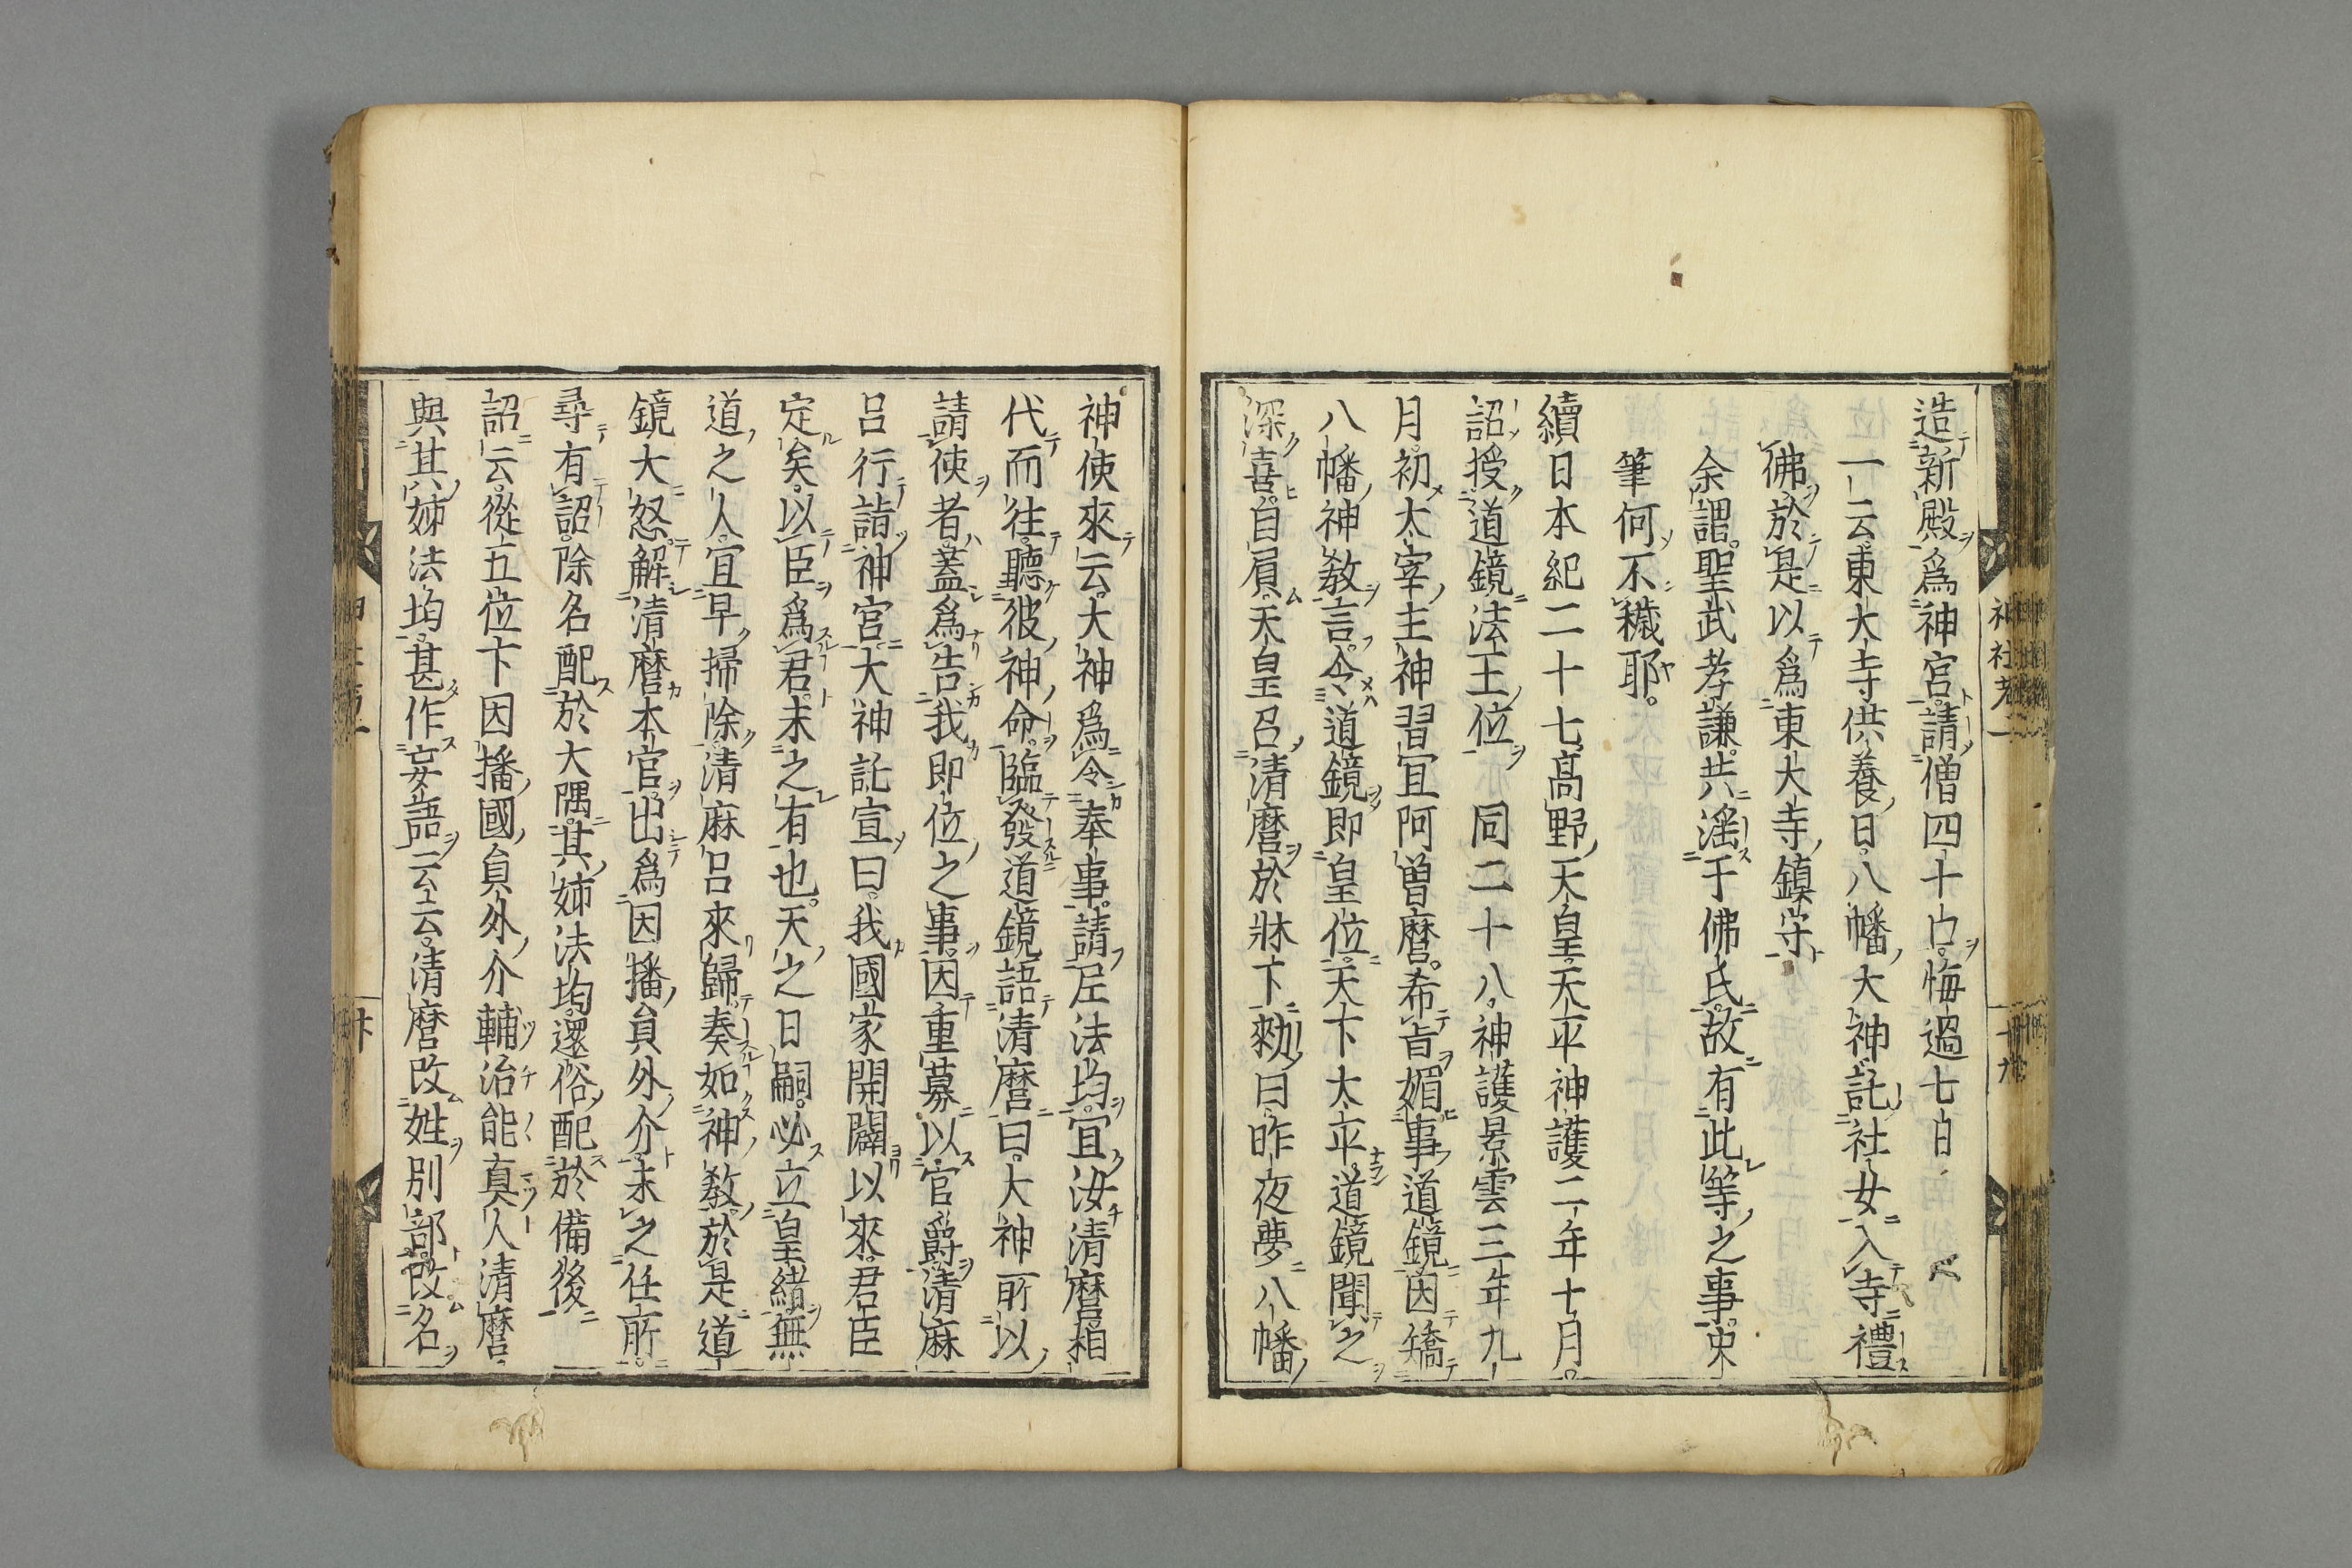 造新殿爲神宮請僧四十口悔過七日
一云東大寺供養日八幡大神託社女入寺禮
佛於是以爲東大寺鎮守
余謂聖武孝謙共滛于佛氏故有此等之事史
筆何不穢耶
續日本紀二十七高野天皇天平神護二年十月
詔授道鏡法王位 同二十八神護景雲三年九
月初太宰主神習冝阿曽麿希旨媚事道鏡因矯
八幡神教言令道鏡即皇位天下太平道鏡聞之
深喜自屓天皇召清麿於牀下勑曰昨夜夢八幡
神社考二
神使來云大神爲令奉事請尼法均冝汝清麿相
代而往聽彼神命臨發道鏡語清麿曰大神所以
請使者蓋爲告我即位之事因重募以官爵清麻
呂行詣神宮大神託宣曰我國家開闢以來君臣
定矣以臣爲君未之有也天之日嗣必立皇緒無
道之人冝早掃除清麻呂來歸奏如神教於是道
鏡大怒解清麿本官出爲因播員外介未之任所
尋有詔除名配於大隅其姉法均還俗配於備後
詔云從五位下因播國員外介輔治能真人清麿
與其姉法均甚作妄語云云清麿改姓別部改名